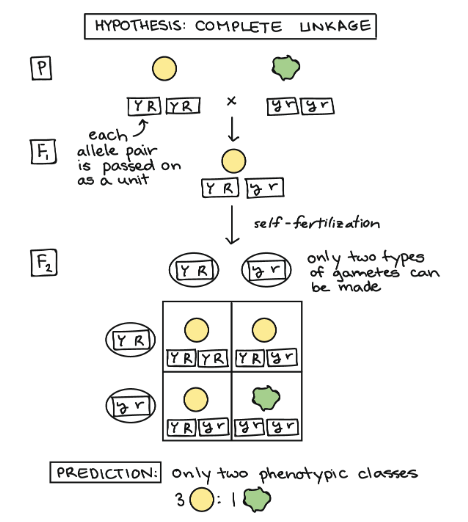 HYPOTHESIS: COMPLETE LINKAGE
P
YR YR x yr yr
each
allele pair
is passed on
as a unit
F1
YR yr
self-fertilization
F2
YR yr
only two types
of gametes can
be made
YR
YR YR YR yr
yr
YR yr yr yr
PREDICTION: only two phenotypic classes
3 : 1